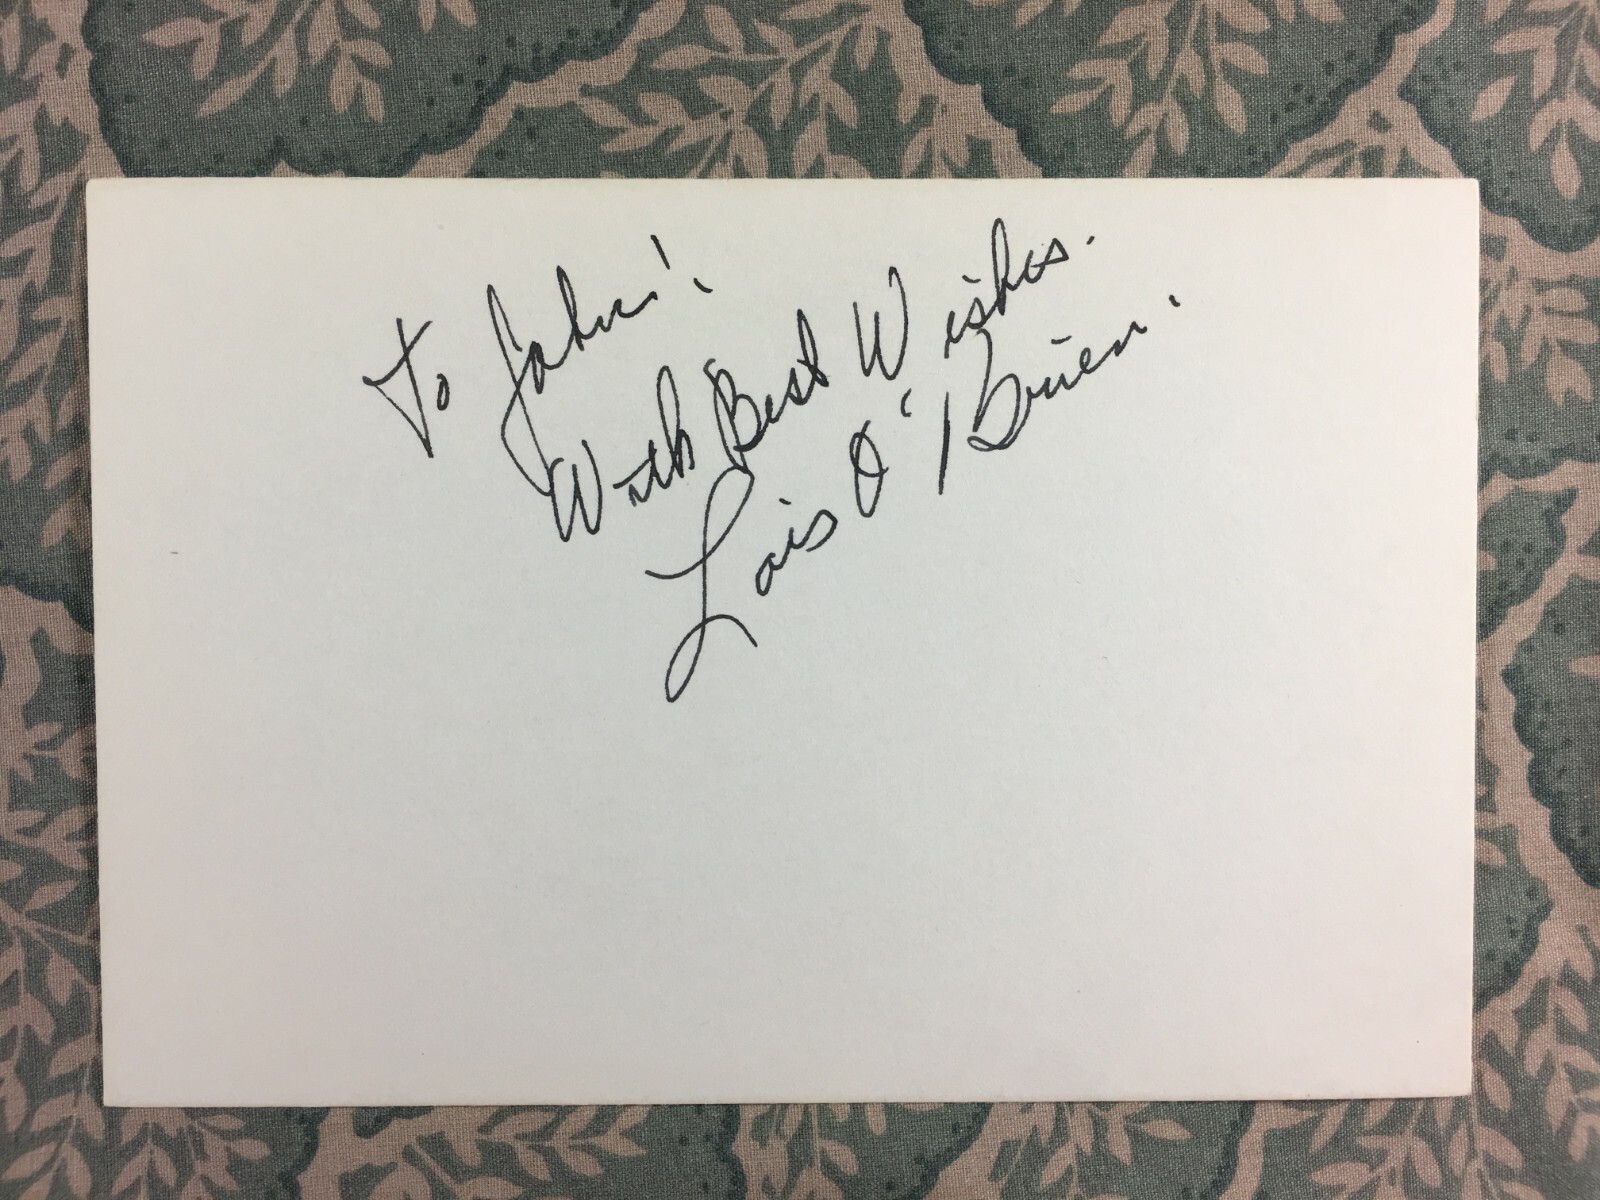 To John!
With Best Wishes.
Lois O'Brien.